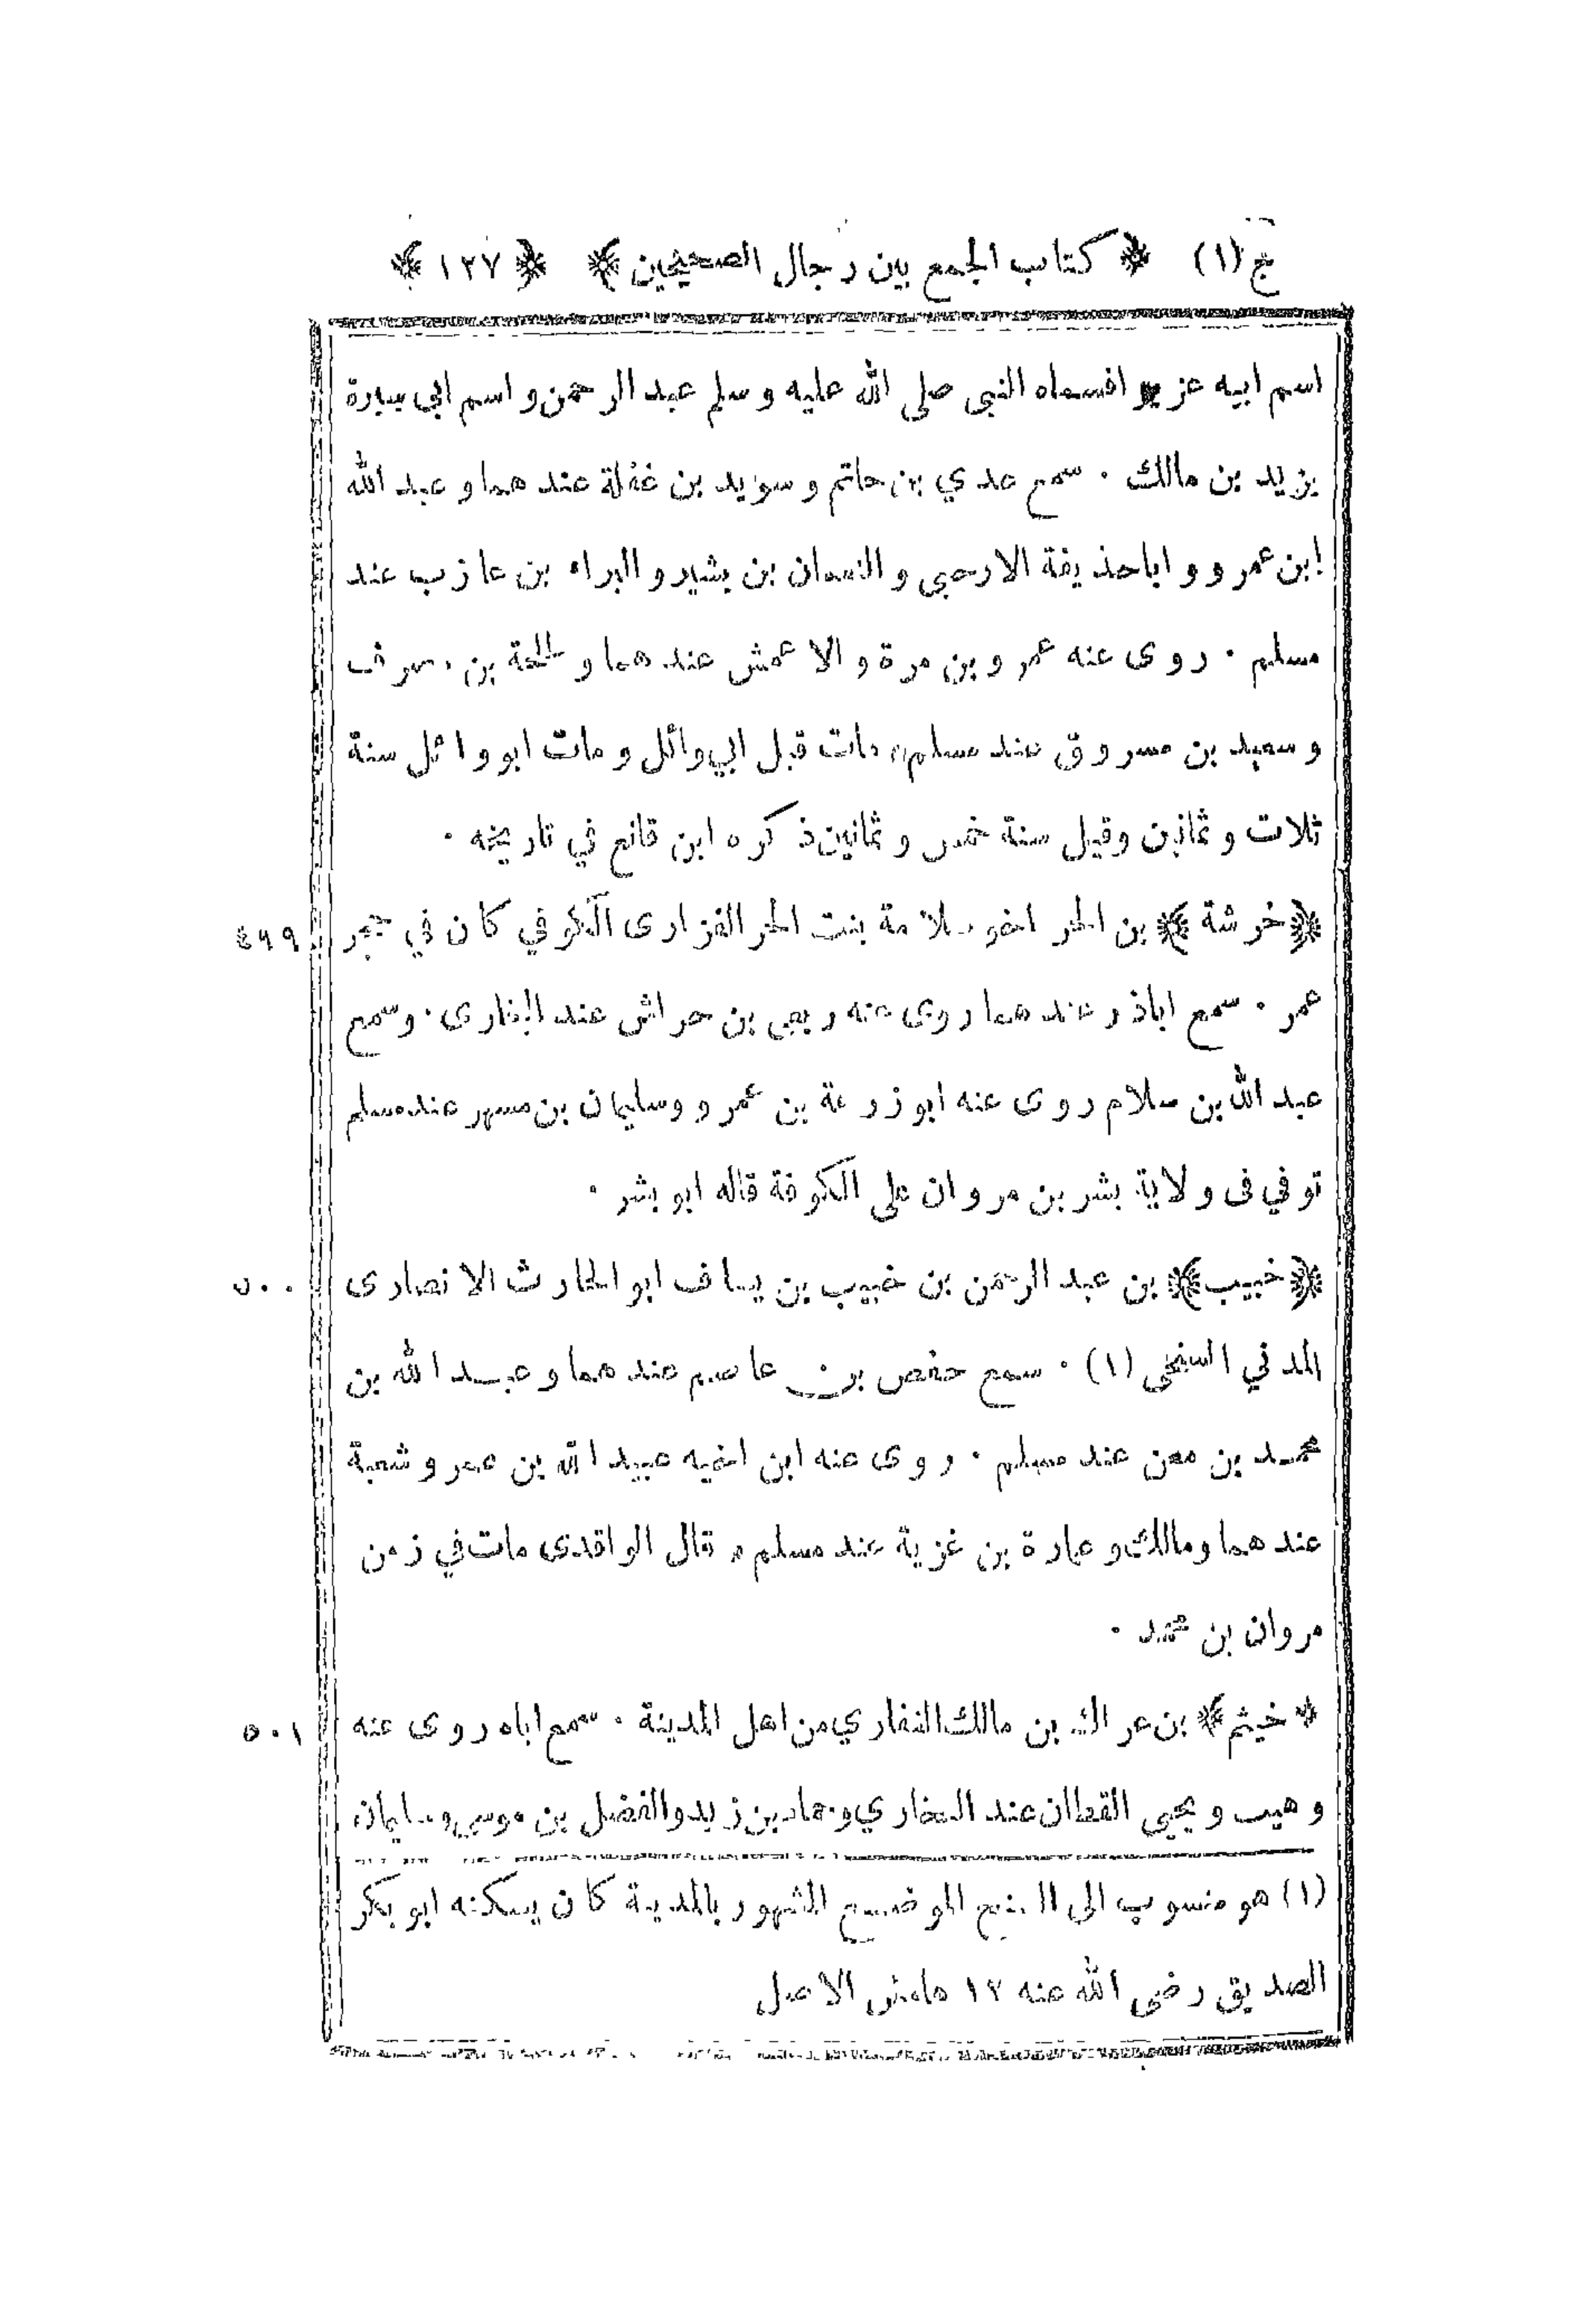 ج (١) ﴿ كتاب الجمع بين رجال الصحيحين ﴾ ﴿ ١٢٧ ﴾
اسم ابيه عزيزا فسماه النبى صلى الله عليه وسلم عبد الرحمن واسم ابي سبرة
يزيد بن مالك ٠ سمع عدي بن حاتم وسويد بن غفلة عندهما وعبد الله
ابن عمرو وابا حذيفة الارحبي والنعمان بن بشير والبراء بن عازب عند
مسلم ٠ روى عنه عمرو بن مرة والاعمش عندهما وطلحة بن مصرف
وسعيد بن مسروق عند مسلم، مات قبل ابي وائل ومات ابو وائل سنة
ثلاث وثمانين وقيل سنة خمس وثمانين ذكره ابن قانع في تاريخه ٠
﴿خرشة﴾ بن الحر اخو سلامة بنت الحر الفزارى الكوفي كان في حجر ٤٩٩
عمر ٠ سمع اباذر عندهما روى عنه ربعى بن حراش عند البخارى ٠ وسمع
عبد الله بن سلام روى عنه ابو زرعة بن عمرو وسليمان بن مسهر عند مسلم
توفي فى ولاية بشر بن مروان على الكوفة قاله ابو بشر ٠
﴿خبيب﴾ بن عبد الرحمن بن خبيب بن يساف ابو الحارث الانصارى ٥٠٠
المدني السنحى (١) ٠ سمع حفص بن عاصم عندهما وعبد الله بن
محمد بن معن عند مسلم ٠ روى عنه ابن اخيه عبيد الله بن عمر وشعبة
عندهما ومالك وعمارة بن غزية عند مسلم، قال الواقدى مات في زمن
مروان بن محمد ٠
﴿خيثم﴾ بن عراك بن مالك الغفاري من اهل المدينة ٠ سمع اباه روى عنه ٥٠١
وهيب ويحيى القطان عند البخاري وحماد بن زيد والفضل بن موسى وسليمان
(١) هو منسوب الى السنح الموضع المشهور بالمدينة كان يسكنه ابو بكر
الصديق رضى الله عنه ١٢ هامش الاصل